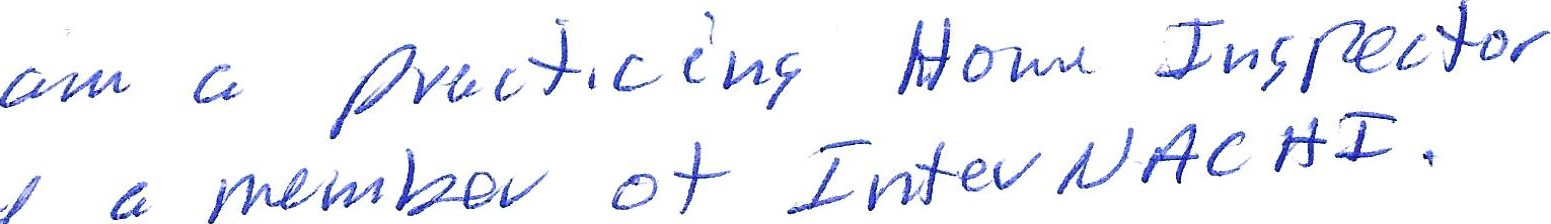 am a practicing Home Inspector
a member of InterNACHI.